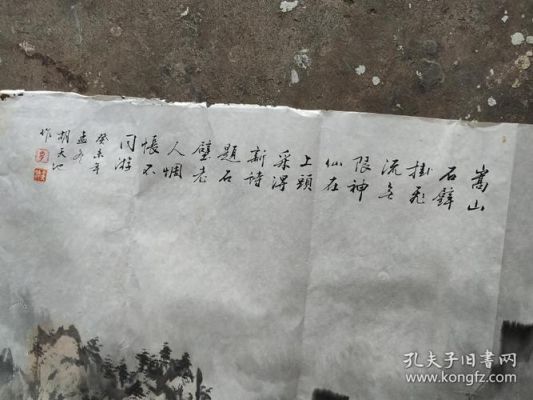 嵩山
石壁
掛飛
流無
限神
仙在
上頭
采得
新詩
題石
壁老
人惆
悵不
同游
癸未年
孟冬
胡天也
作
孔夫子旧书网
www.kongfz.com